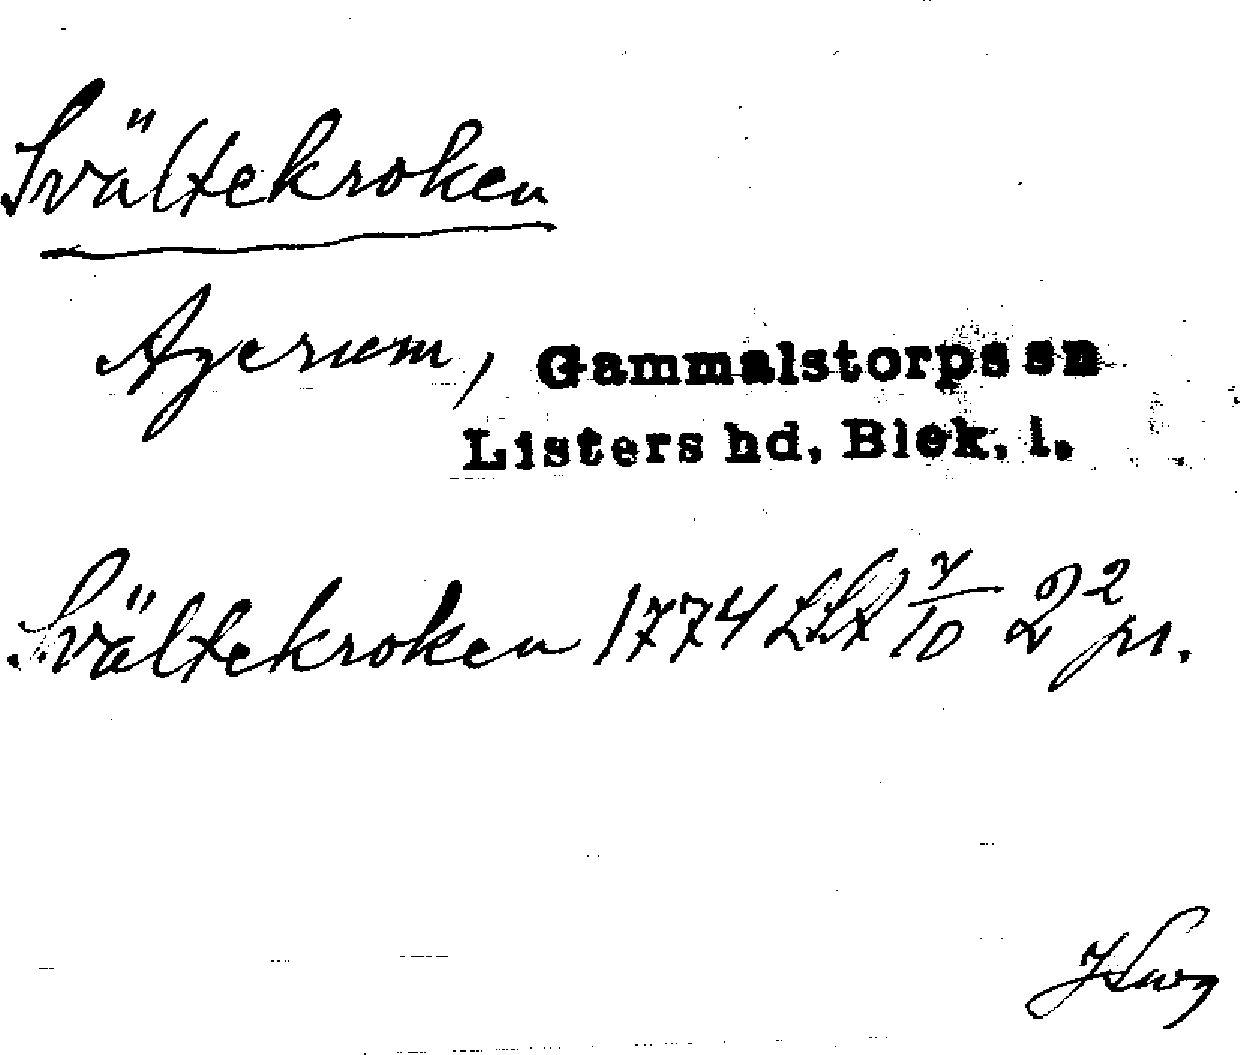 Svältekroken
Agerum, Gammalstorps sn
Listers hd, Blek. l.
Svältekroken 1774 LSA γ/10 2² pr.